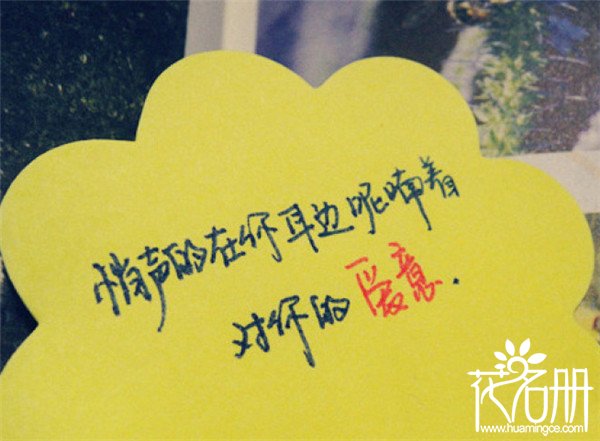 悄声的在你耳边呢喃着
对你的爱意.
花名册
www.huamingce.com